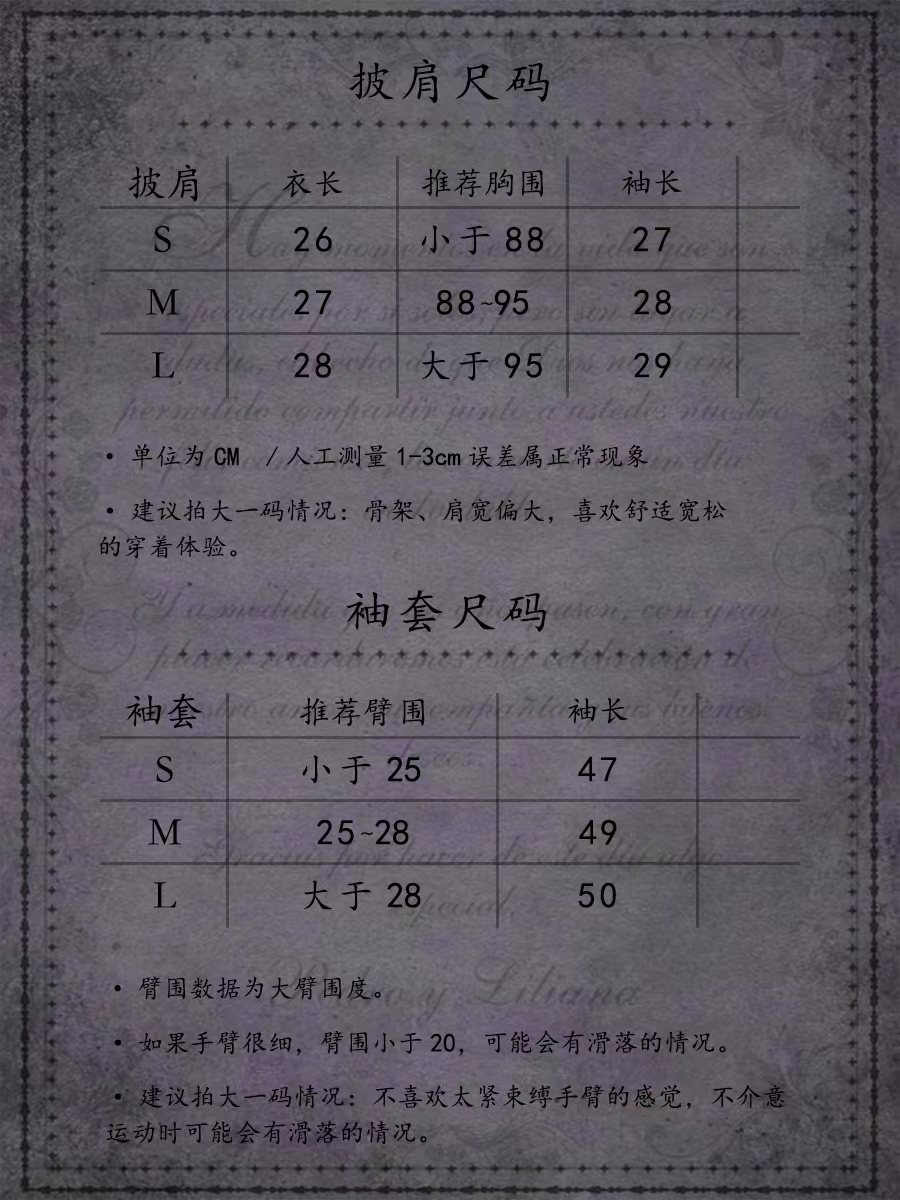 披肩尺码
披肩 衣长 推荐胸围 袖长
S 26 小于88 27
M 27 88~95 28
L 28 大于95 29
• 单位为CM /人工测量1-3cm误差属正常现象
• 建议拍大一码情况：骨架、肩宽偏大，喜欢舒适宽松
的穿着体验。
袖套尺码
袖套 推荐臂围 袖长
S 小于 25 47
M 25~28 49
L 大于 28 50
• 臂围数据为大臂围度。
• 如果手臂很细，臂围小于20，可能会有滑落的情况。
• 建议拍大一码情况：不喜欢太紧束缚手臂的感觉，不介意
运动时可能会有滑落的情况。